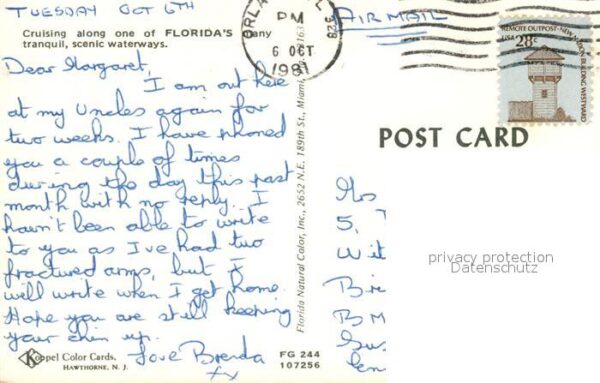 TUESDAY OCT 6TH
Cruising along one of FLORIDA'S many
tranquil, scenic waterways.
Dear Margaret,
I am out here
at my Uncles again for
two weeks. I have phoned
you a couple of times
during the day this past
month with no reply. I
havn't been able to write
to you as I've had two
fractured arms, but I
will write when I get home.
Hope you are still keeping
your chin up.
Love Brenda
xx
Koppel Color Cards.
HAWTHORNE, N. J.
FG 244
107256
Florida Natural Color, Inc., 2652 N.E. 189th St., Miami,
ORLA
PM
6 OCT
1981
328
AIR MAIL
REMOTE OUTPOST-NEW NATION BUILDING WESTWARD
USA 28c
POST CARD
5,
Wit
Bre
B
privacy protection
Datenschutz